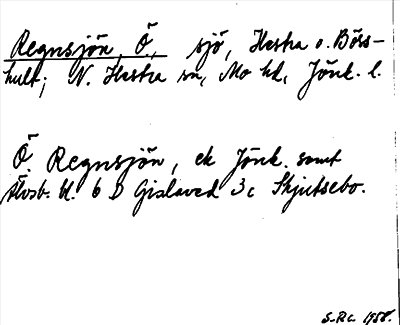 Regnsjön, Ö., sjö, Hestra o. Börs-
hult; N. Hestra sn, Mo hd, Jönk. l.
Ö. Regnsjön, ek Jönk. samt
Älvsb. bl. 6 D Gislaved 3c Skjutsebo.
S.-Rc. 1958.